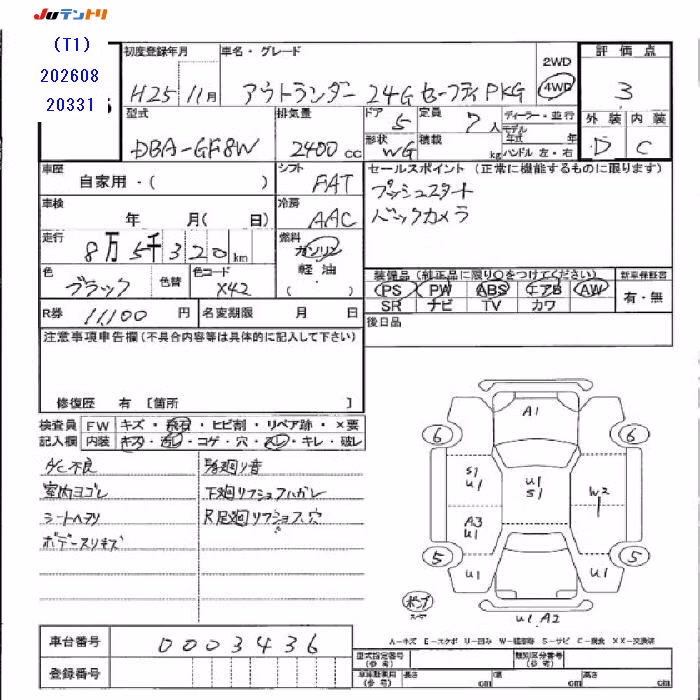 Juテントリ
(T1)
202608
20331
初度登録年月
H25 11月
車名・グレード
アウトランダー 24G セーフティPKG
2WD
4WD
評価点
3
外装 内装
D C
型式
DBA-GF8W
排気量
2400cc
ドア
5
定員
7人
形状
WG
積載
kg
ディーラー・並行
モデル年式 年
ハンドル 左・右
車歴
自家用・( )
シフト
FAT
セールスポイント (正常に機能するものに限ります)
プッシュスタート
バックカメラ
車検
年 月( 日)
冷房
AAC
走行
8万5千320km
燃料
ガソリン
軽油
( )
色
ブラック
色替
色コード
X42
装備品(純正品に限り○をつけてください)
新車保証書
PS PW ABS エアB AW
SR ナビ TV カワ
有・無
R券 11,100円
名変期限 月 日
後日品
注意事項申告欄(不具合内容等は具体的に記入して下さい)
修復歴 有 [箇所 ]
検査員記入欄
FW キズ・飛石・ヒビ割・リペア跡・×要
内装 キズ・汚レ・コゲ・穴・スレ・キレ・破レ
A/C不良
室内ヨゴレ
シートヘタリ
ボデースリキズ
廻り音
下廻リフショクハガレ
R足廻リフショク穴
A1
6 6
S1
U1
U1
S1
W2
A3
U1
5 5
U1 U1
U1 A2
A-キズ E-エクボ U-凹み W-補修跡 S-サビ C-腐食 XX-交換済
車台番号
0003436
登録番号
型式指定番号(参考)
類別区分番号(参考)
長さ cm
幅 cm
高さ cm